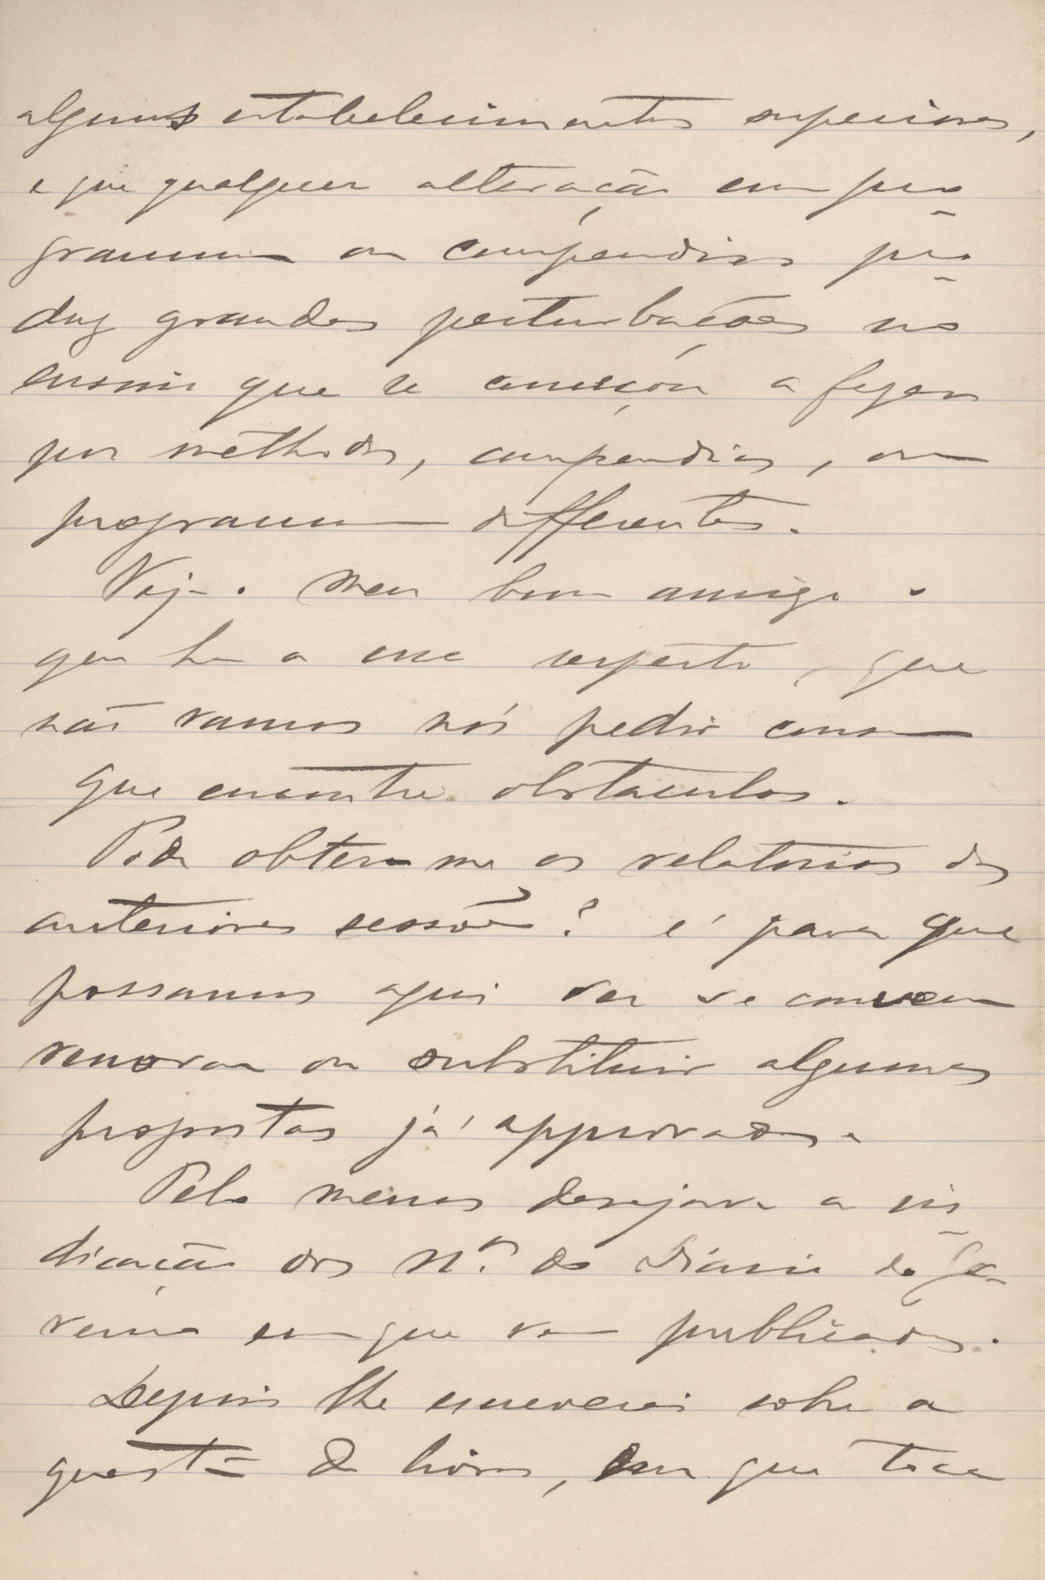 alguns estabelecimentos superiores,
e que qualquer alteração em pro-
gramma ou compendios pro-
duz grandes perturbações no
ensino que se começou a fazer
por methodos, compendios, ou
programma differentes.
Veja. meu bom amigo o
que ha a esse respeito, que
não vamos nós pedir cousa
que encontre obstaculos.
Póde obter-me os relatorios das
anteriores sessões? é para que
possamos aqui ver se convem
renovar ou substituir algumas
propostas já approvadas.
Pelo menos desejava a in-
dicação dos N.os do Diario do Go-
verno em que vem publicados.
Depois lhe escreverei sobre a
questão de livros, em que toca